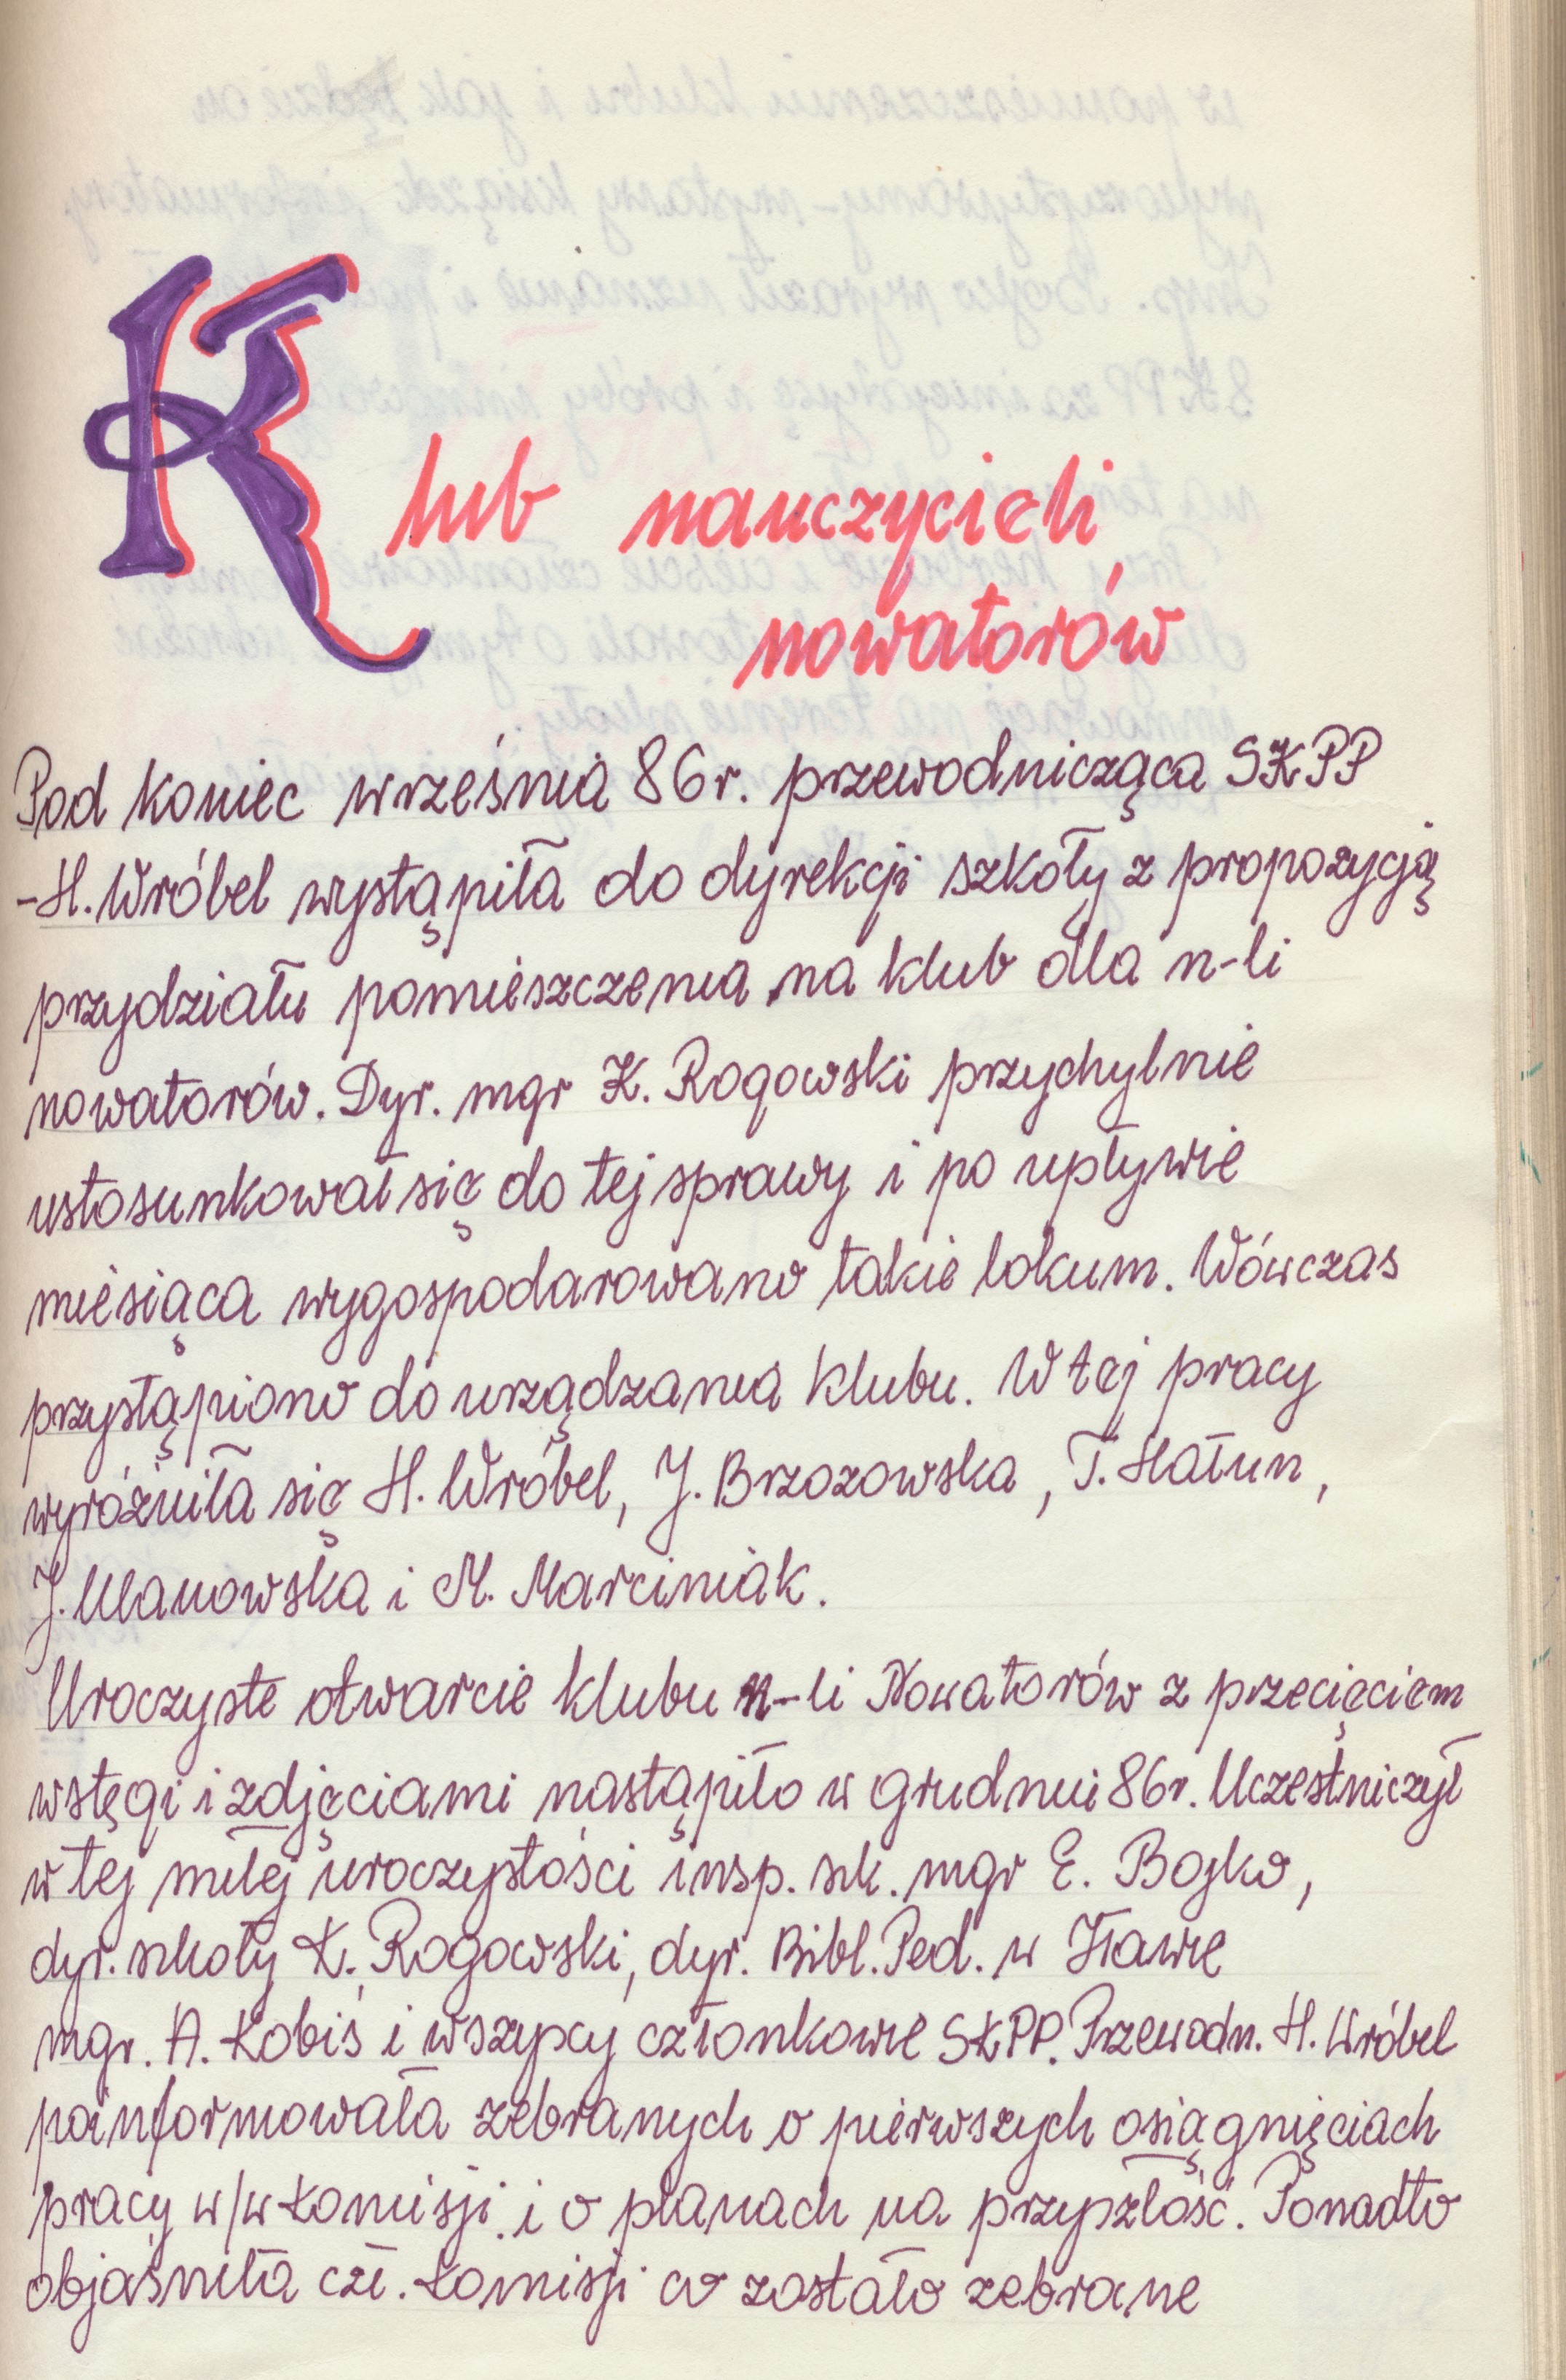 Klub nauczycieli
nowatorów
Pod koniec września 86r. przewodnicząca SKPP
-H. Wróbel wystąpiła do dyrekcji szkoły z propozycją
przydziału pomieszczenia na klub dla n-li
nowatorów. Dyr. mgr K. Rogowski przychylnie
ustosunkował się do tej sprawy i po upływie
miesiąca wygospodarowano takie lokum. Wówczas
przystąpiono do urządzania klubu. W tej pracy
wyróżniła się H. Wróbel, J. Brzozowska, T. Hałun,
J. Ulanowska i M. Marciniak.
Uroczyste otwarcie klubu n-li Nowatorów z przecięciem
wstęgi i zdjęciami nastąpiło w grudniu 86r. Uczestniczył
w tej miłej uroczystości insp. szk. mgr E. Bojko,
dyr. szkoły K. Rogowski, dyr. Bibl. Ped. w Iławie
mgr. A. Kobiś i wszyscy członkowie SKPP. Przewodn. H. Wróbel
poinformowała zebranych o pierwszych osiągnięciach
pracy w/w Komisji i o planach na przyszłość. Ponadto
objaśniła czł. Komisji co zostało zebrane